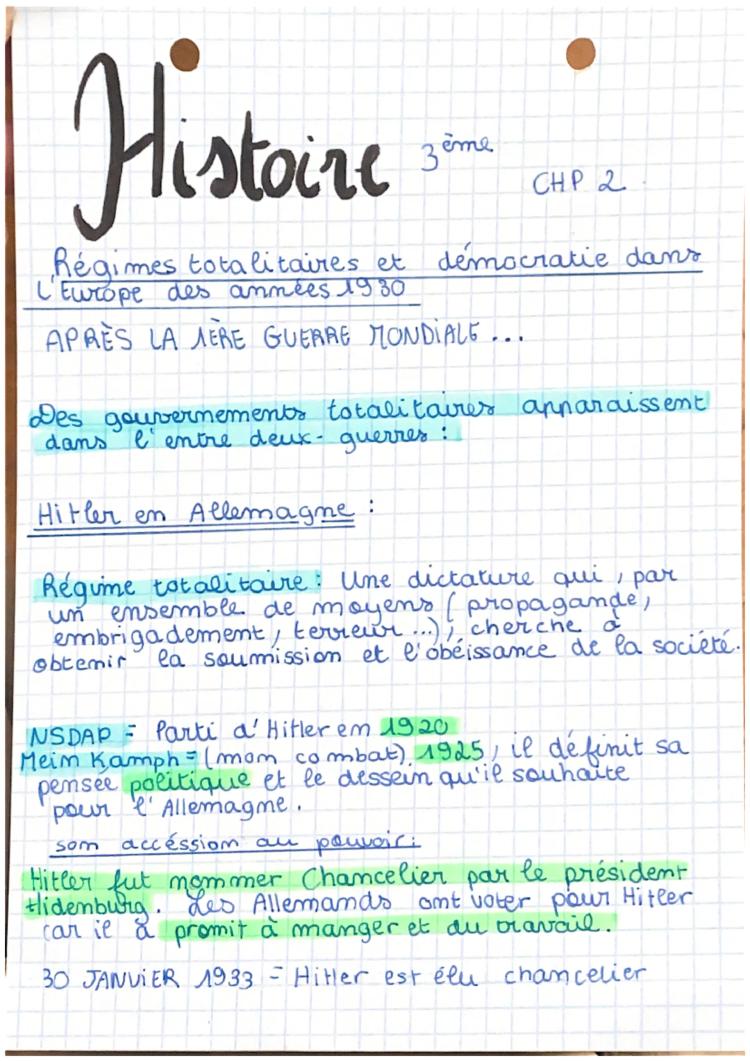 Histoire 3ème
CHP 2.
Régimes totalitaires et démocratie dans
l'Europe des années 1930
APRÈS LA 1ÈRE GUERRE MONDIALE ...
Des gouvernements totalitaires apparaissent
dans l'entre deux-guerres :
Hitler en Allemagne :
Régime totalitaire : Une dictature qui, par
un ensemble de moyens (propagande,
embrigadement, terreur...), cherche à
obtenir la soumission et l'obéissance de la société.
NSDAP = Parti d'Hitler en 1920
Meim Kamph = (mon combat). 1925, il définit sa
pensée politique et le dessein qu'il souhaite
pour l'Allemagne.
son accéssion au pouvoir :
Hitler fut nommer Chancelier par le président
Hidenburg. Les Allemands ont voter pour Hitler
car il a promit à manger et du travail.
30 JANVIER 1933 = Hitler est élu chancelier